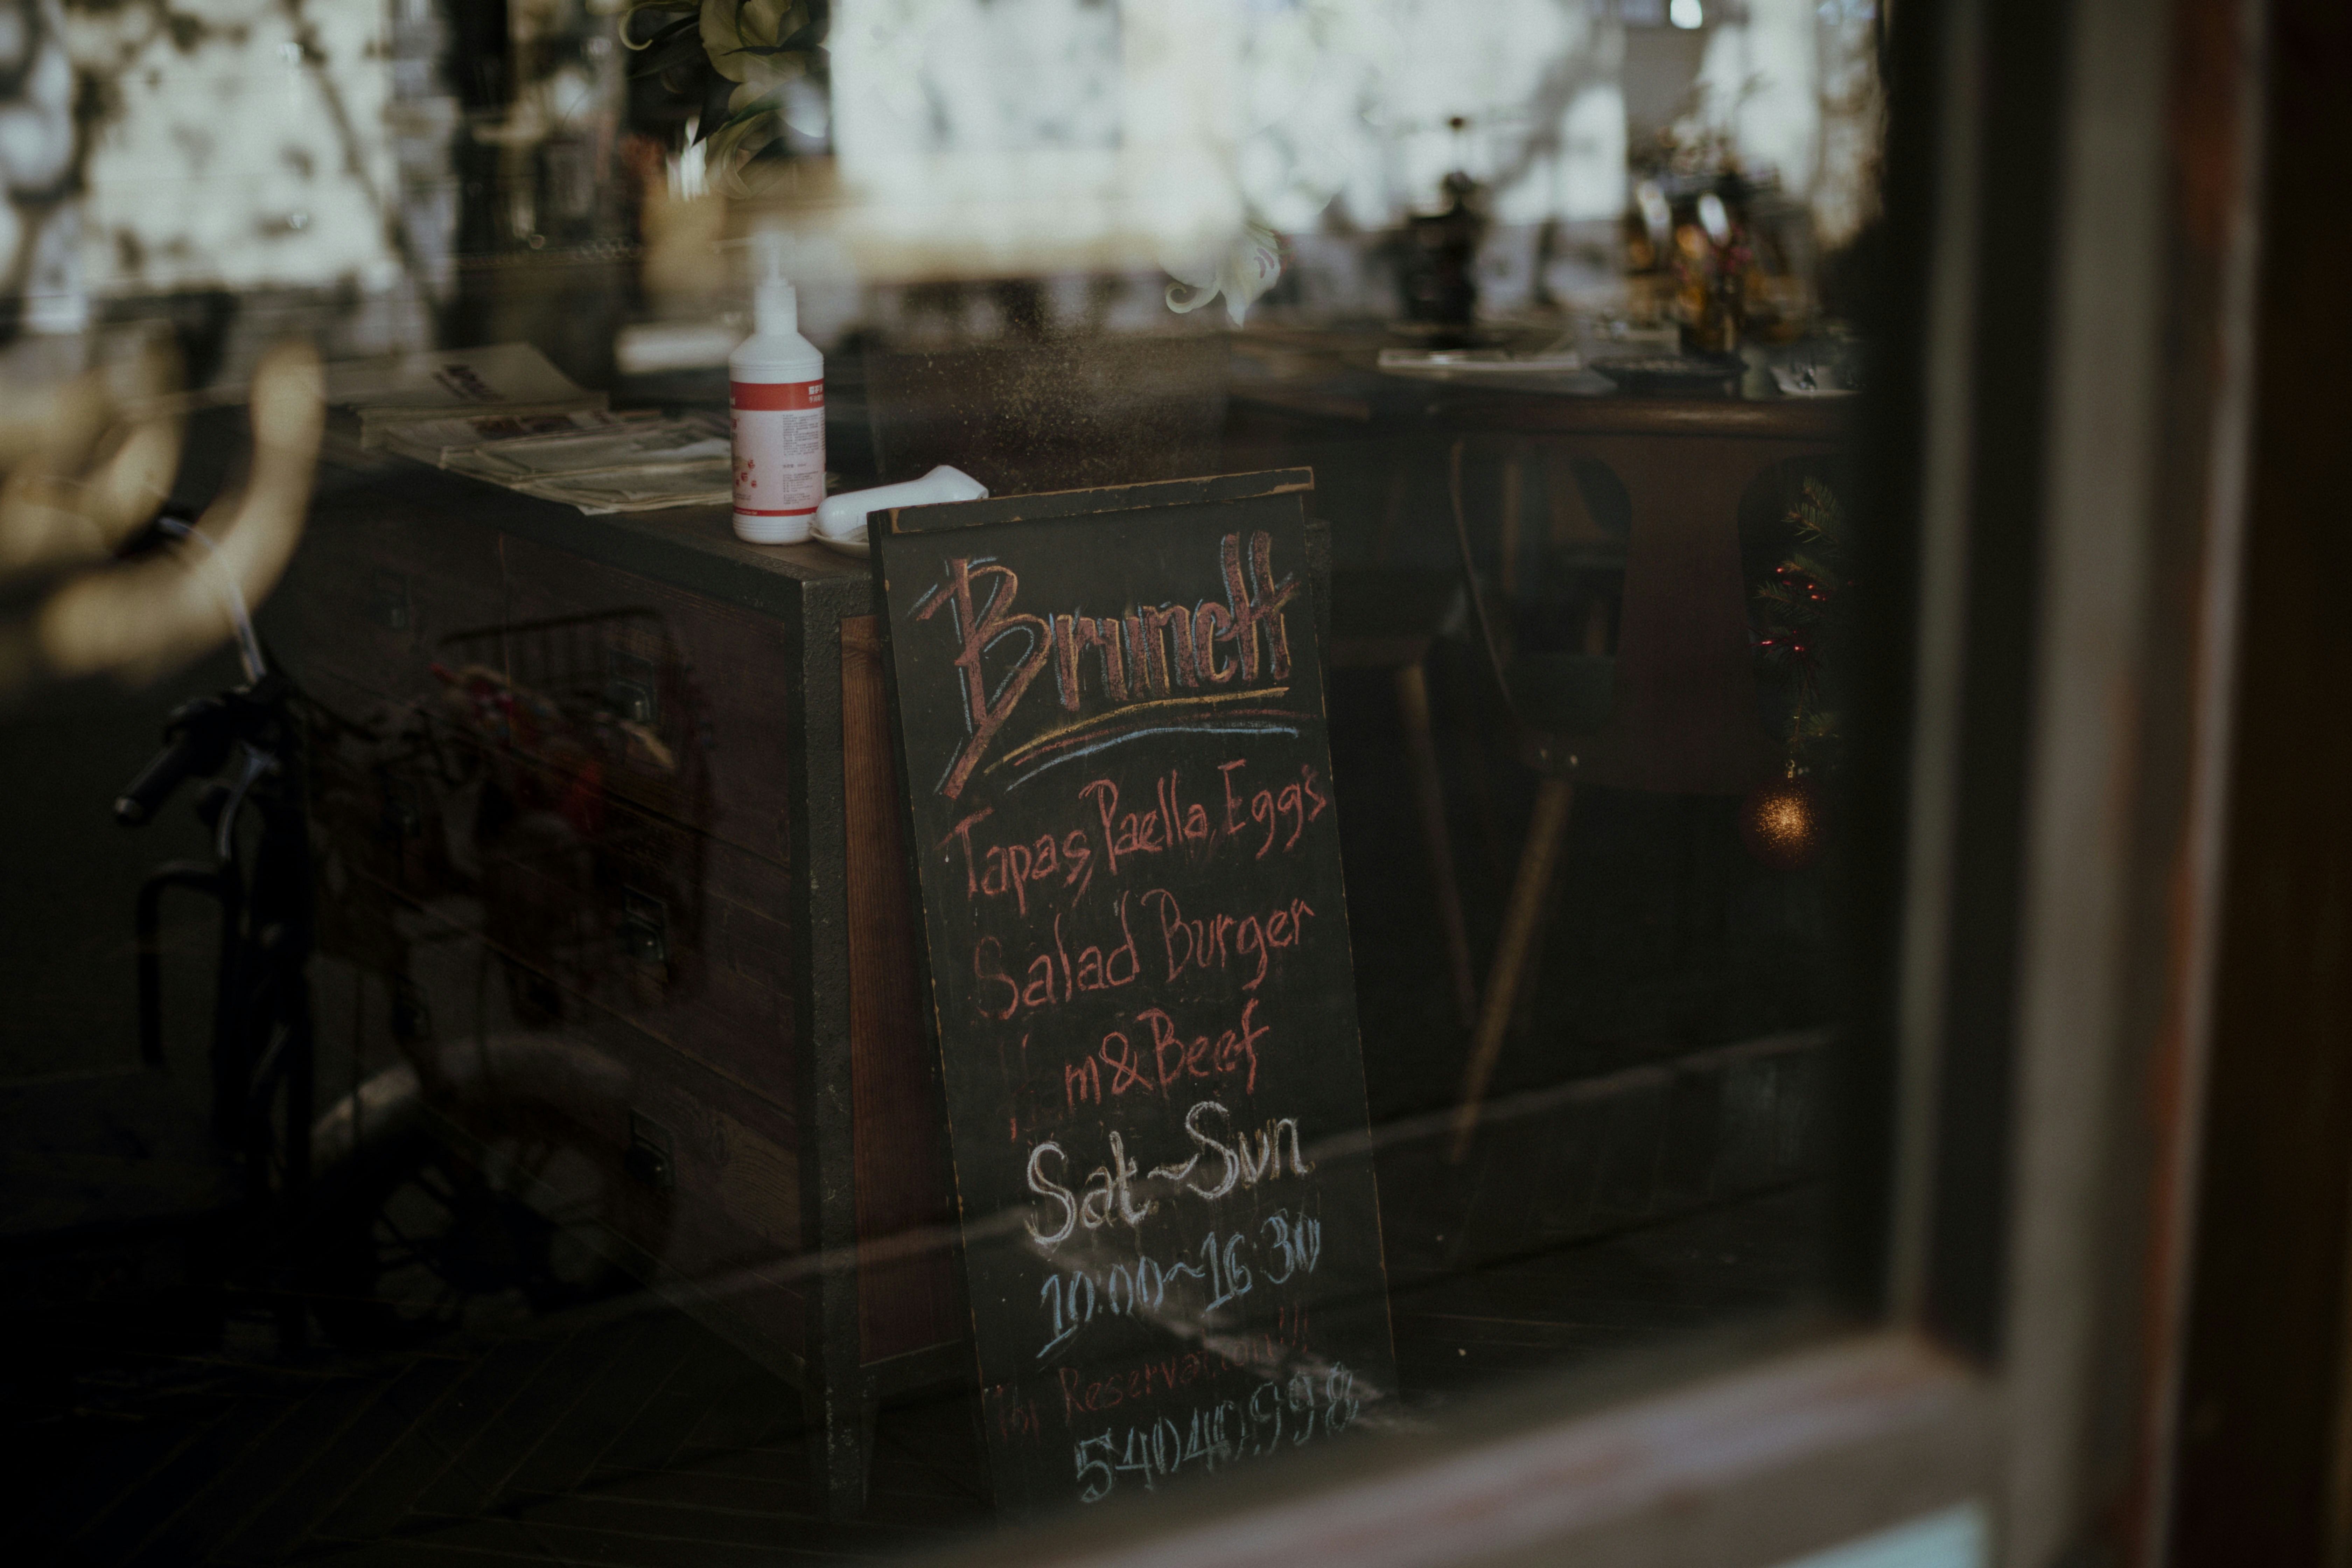 Brunch
Tapas, Paella, Eggs
Salad Burger
Ham & Beef
Sat~Sun
10:00~16:30
for Reservation!!!
54040998